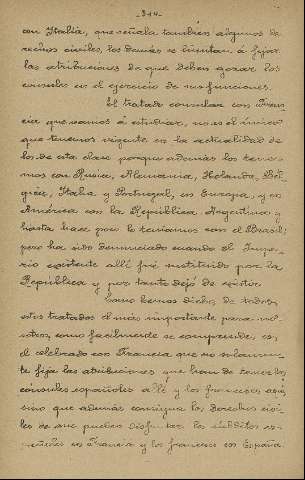 -344-
con Italia, que señala también algunos de-
rechos civiles, los demás se limitan á fijar
las atribuciones de que deben gozar los
cónsules en el ejercicio de sus funciones.
El tratado consular con Fran-
cia que vamos á estudiar, no es el único
que tenemos vigente en la actualidad de
los de esta clase porque además los tene-
mos con Rusia, Alemania, Holanda, Bél-
gica, Italia y Portugal, en Europa, y en
América con la República Argentina y
hasta hace poco lo teníamos con el Brasil;
pero ha sido denunciado cuando el Impe-
rio existente allí fué sustituido por la
República y por tanto dejó de existir.
Como hemos dicho, de todos
estos tratados el más importante para no-
sotros, como facilmente se comprende, es
el celebrado con Francia que no solamen-
te fija las atribuciones que han de tener los
cónsules españoles allí y los franceses aquí,
sino que además consigna los derechos civi-
les de que pueden disfrutar los súbditos es-
pañoles en Francia y los franceses en España.